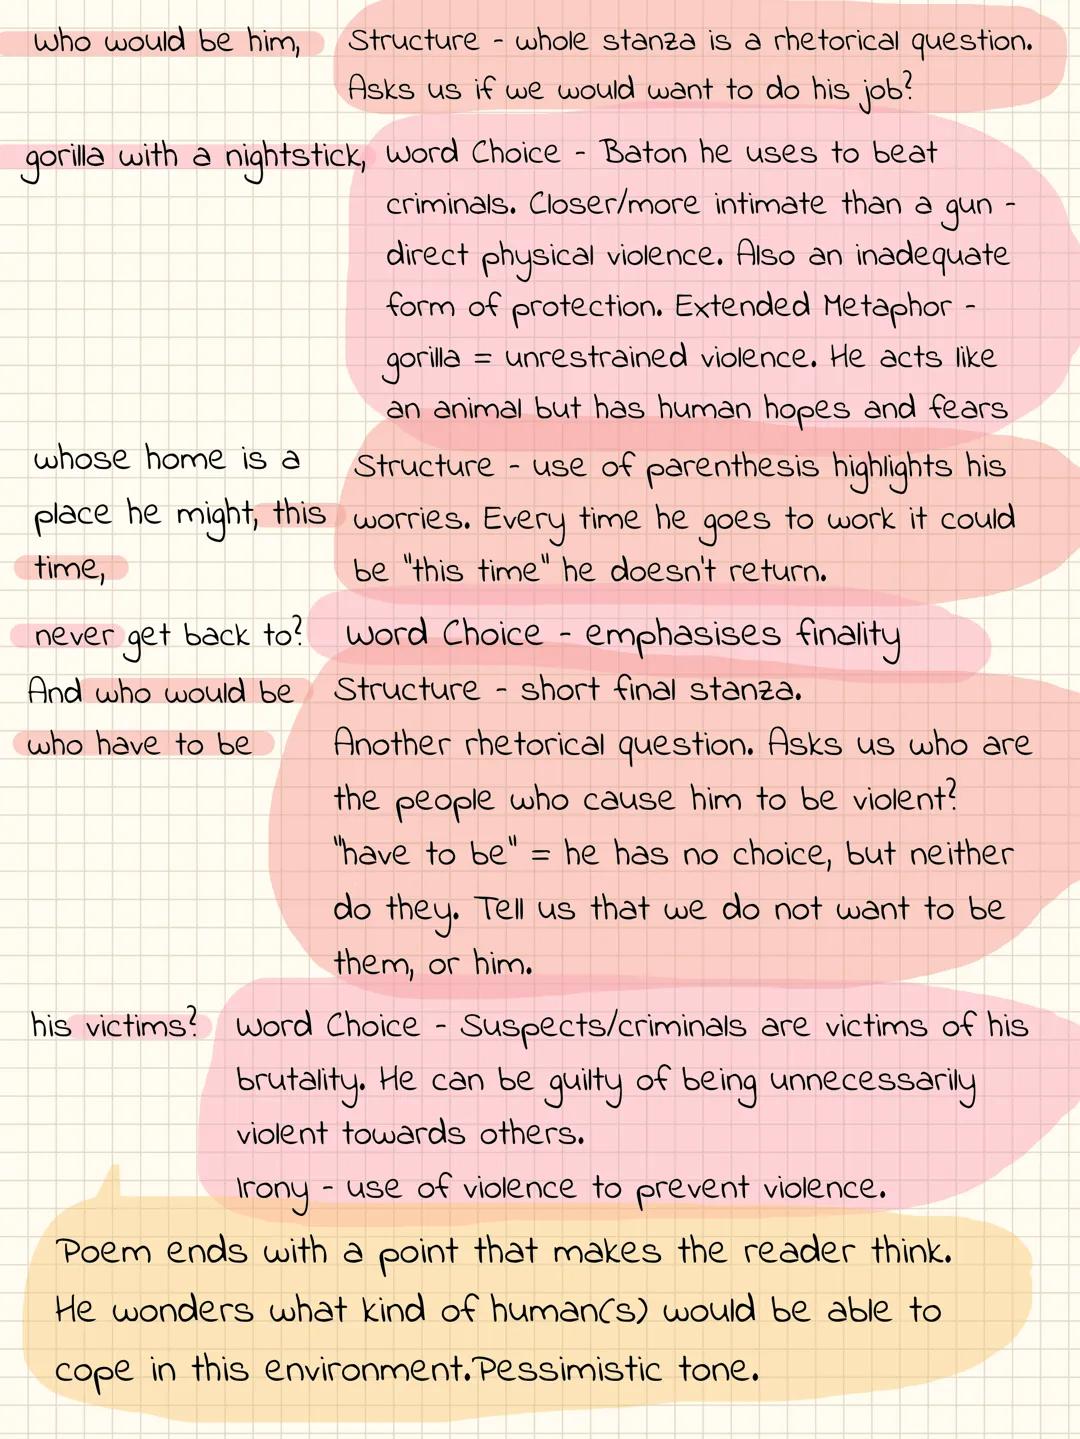 who would be him,
Structure - whole stanza is a rhetorical question.
Asks us if we would want to do his job?
gorilla with a nightstick,
Word Choice - Baton he uses to beat
criminals. Closer/more intimate than a gun -
direct physical violence. Also an inadequate
form of protection. Extended Metaphor -
gorilla = unrestrained violence. He acts like
an animal but has human hopes and fears
whose home is a
place he might, this
time,
Structure - use of parenthesis highlights his
worries. Every time he goes to work it could
be "this time" he doesn't return.
never get back to?
Word Choice - emphasises finality
And who would be
who have to be
Structure - short final stanza.
Another rhetorical question. Asks us who are
the people who cause him to be violent?
"have to be" = he has no choice, but neither
do they. Tell us that we do not want to be
them, or him.
his victims?
Word Choice - Suspects/criminals are victims of his
brutality. He can be guilty of being unnecessarily
violent towards others.
Irony - use of violence to prevent violence.
Poem ends with a point that makes the reader think.
He wonders what kind of human(s) would be able to
cope in this environment. Pessimistic tone.